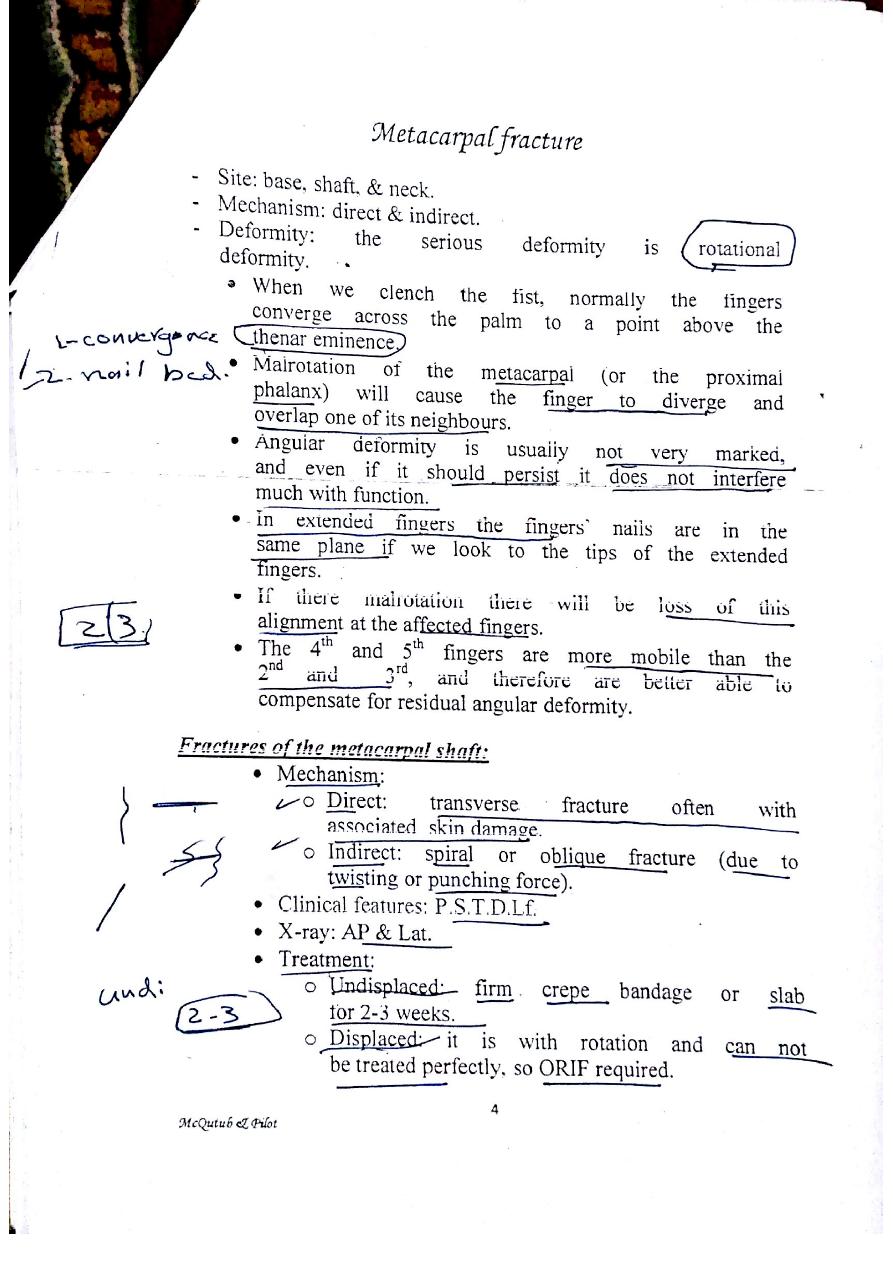 Metacarpal fracture
- Site: base, shaft, & neck.
- Mechanism: direct & indirect.
- Deformity: the serious deformity is rotational
deformity.
• When we clench the fist, normally the fingers
converge across the palm to a point above the
1-convergence thenar eminence.
2- nail bed. • Malrotation of the metacarpal (or the proximal
phalanx) will cause the finger to diverge and
overlap one of its neighbours.
• Angular deformity is usually not very marked,
and even if it should persist it does not interfere
much with function.
• In extended fingers the fingers` nails are in the
same plane if we look to the tips of the extended
fingers.
• If there malrotation there will be loss of this
2 3 alignment at the affected fingers.
• The 4th and 5th fingers are more mobile than the
2nd and 3rd, and therefore are better able to
compensate for residual angular deformity.
Fractures of the metacarpal shaft:
• Mechanism:
o Direct: transverse fracture often with
associated skin damage.
o Indirect: spiral or oblique fracture (due to
twisting or punching force).
• Clinical features: P.S.T.D.Lf.
• X-ray: AP & Lat.
• Treatment:
undi o Undisplaced: firm crepe bandage or slab
2-3 for 2-3 weeks.
o Displaced: it is with rotation and can not
be treated perfectly, so ORIF required.
4
McQutub & Pilot